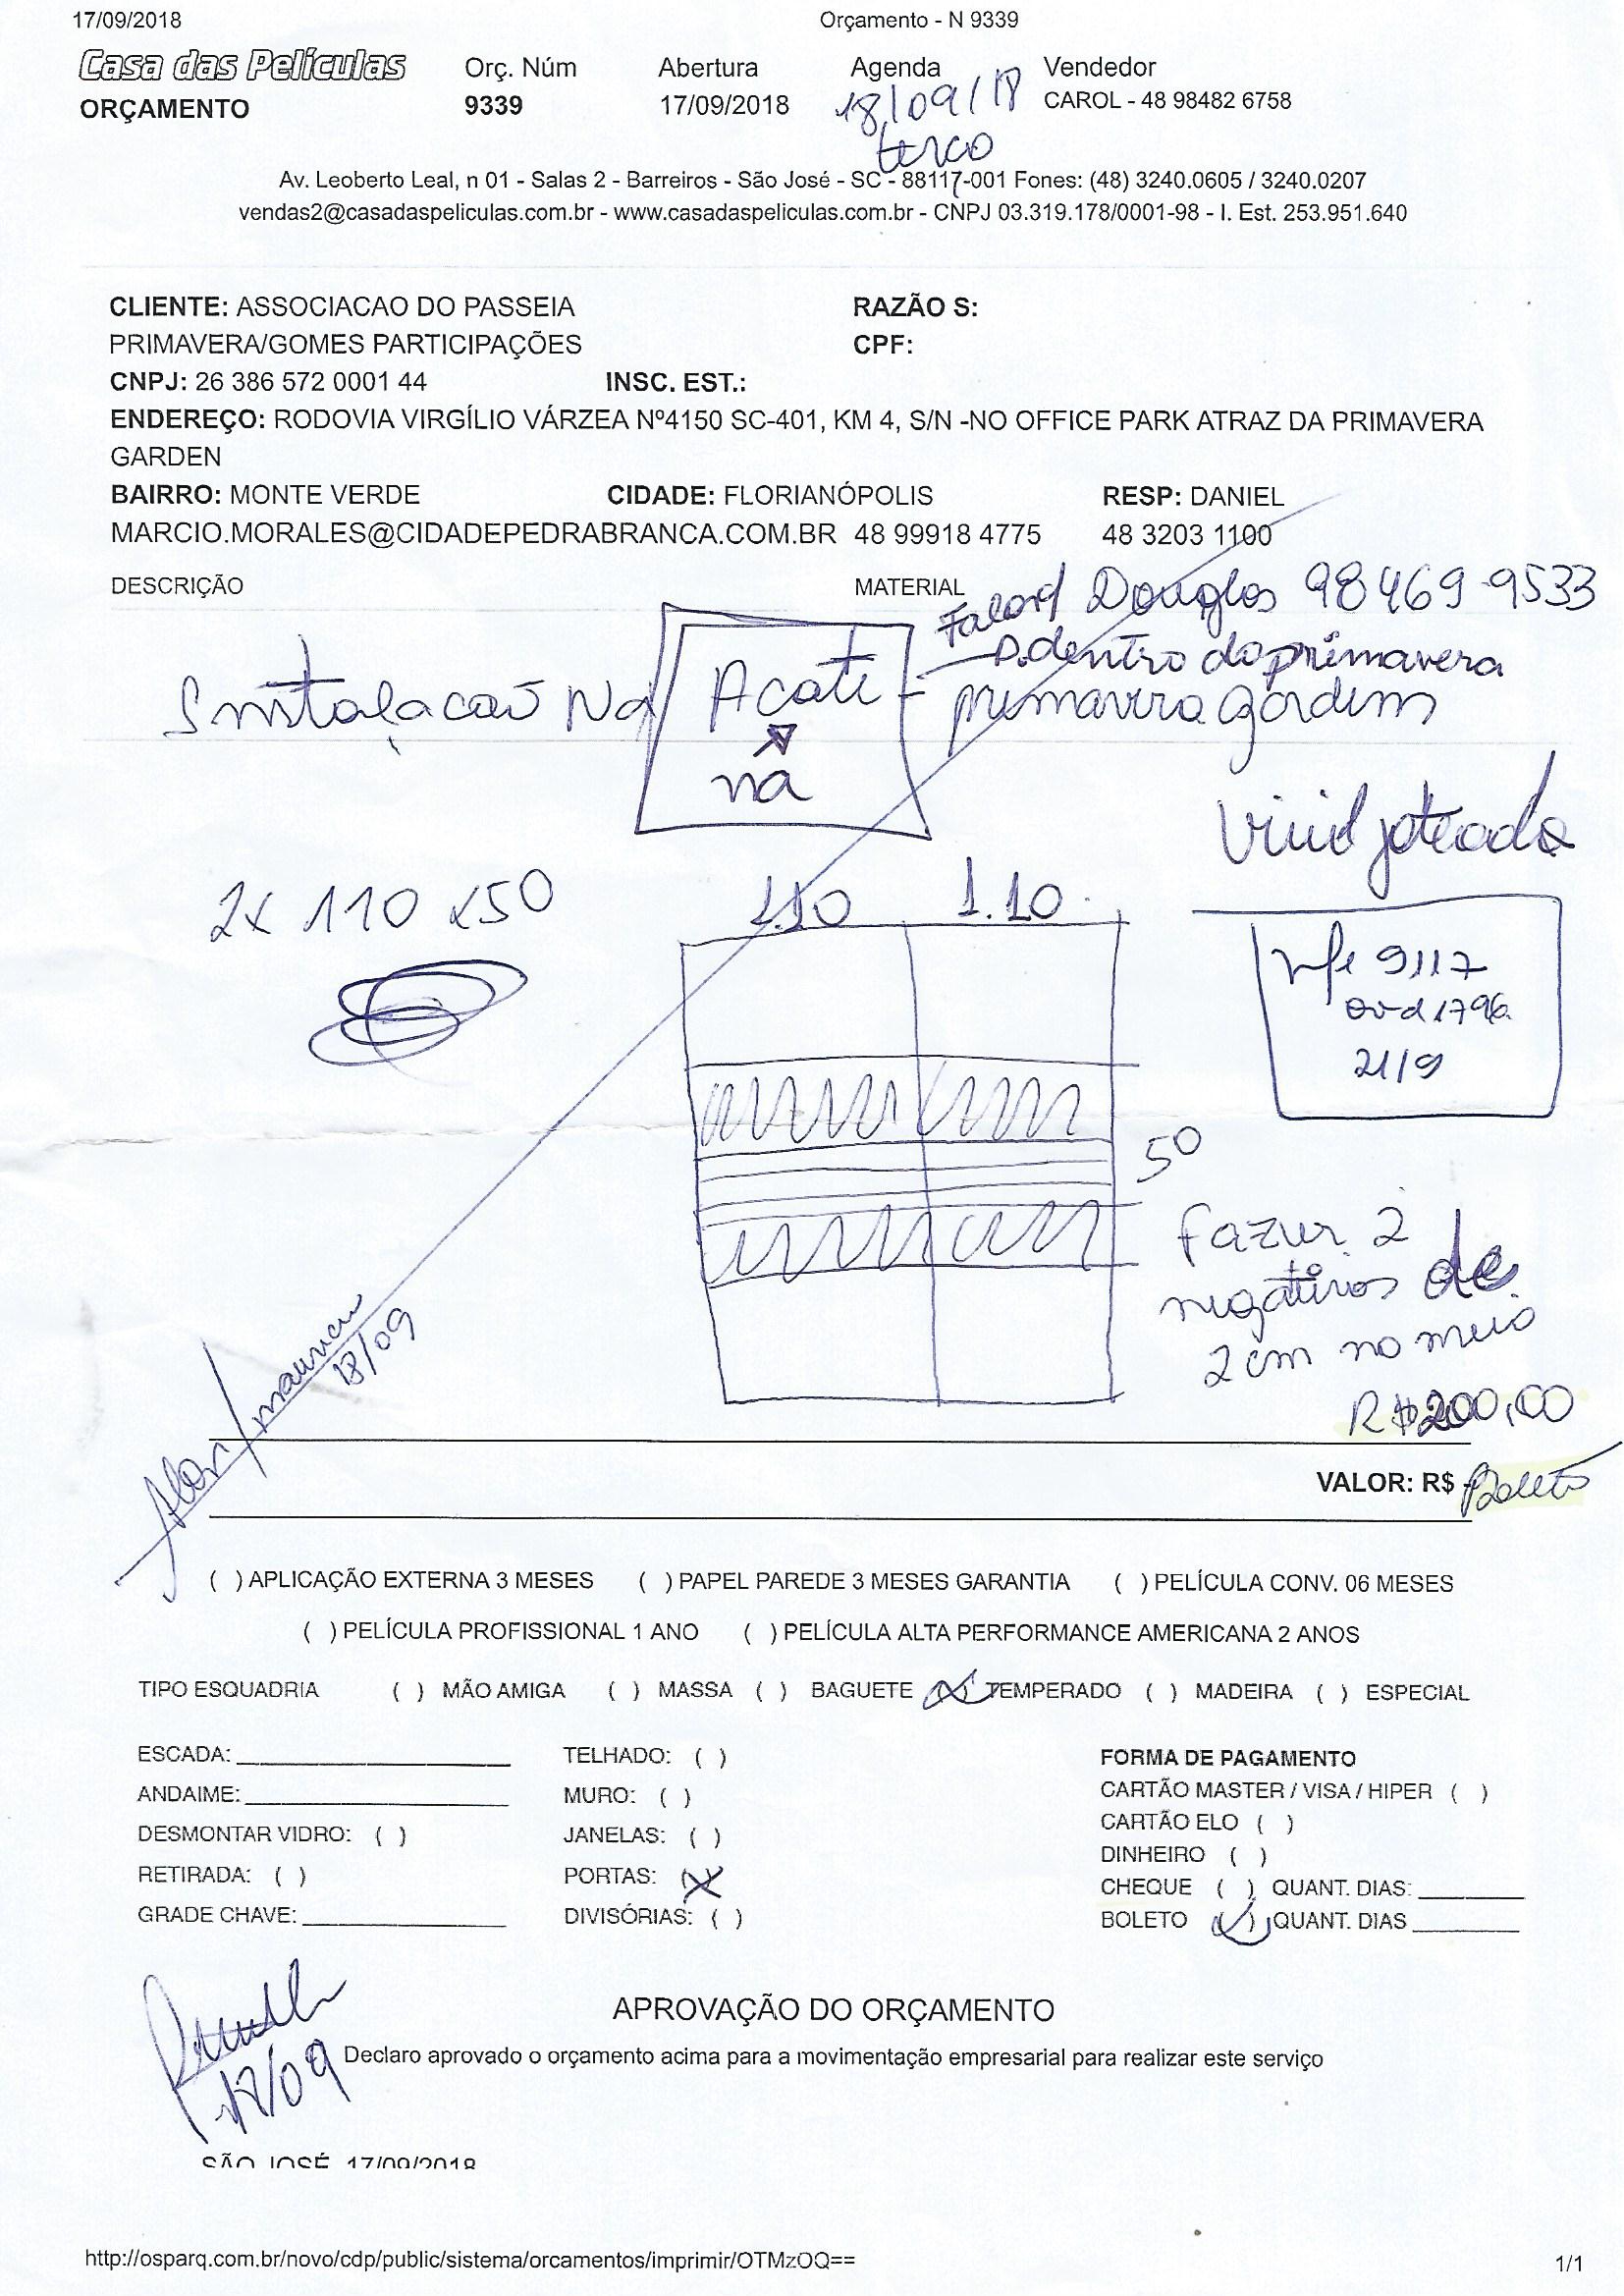 17/09/2018 Orçamento - N 9339
Casa das Películas Orç. Núm Abertura Agenda Vendedor
ORÇAMENTO 9339 17/09/2018 18/09/18 CAROL - 48 98482 6758
terco
Av. Leoberto Leal, n 01 - Salas 2 - Barreiros - São José - SC - 88117-001 Fones: (48) 3240.0605 / 3240.0207
vendas2@casadaspeliculas.com.br - www.casadaspeliculas.com.br - CNPJ 03.319.178/0001-98 - I. Est. 253.951.640
CLIENTE: ASSOCIACAO DO PASSEIA RAZÃO S:
PRIMAVERA/GOMES PARTICIPAÇÕES CPF:
CNPJ: 26 386 572 0001 44 INSC. EST.:
ENDEREÇO: RODOVIA VIRGÍLIO VÁRZEA Nº4150 SC-401, KM 4, S/N -NO OFFICE PARK ATRAZ DA PRIMAVERA
GARDEN
BAIRRO: MONTE VERDE CIDADE: FLORIANÓPOLIS RESP: DANIEL
MARCIO.MORALES@CIDADEPEDRABRANCA.COM.BR 48 99918 4775 48 3203 1100
DESCRIÇÃO MATERIAL
Douglas 98469-9533
dentro do primavera
Instalação Na Acate - primavera gardem
na
Vinil jateado
2x 110 x50 1.10 1.10
nfe 9117
1796
21/9
50
Fazer 2
negativos de
2 cm no meio
18/09
R$200,00
VALOR: R$ Boleto
( ) APLICAÇÃO EXTERNA 3 MESES ( ) PAPEL PAREDE 3 MESES GARANTIA ( ) PELÍCULA CONV. 06 MESES
( ) PELÍCULA PROFISSIONAL 1 ANO ( ) PELÍCULA ALTA PERFORMANCE AMERICANA 2 ANOS
TIPO ESQUADRIA ( ) MÃO AMIGA ( ) MASSA ( ) BAGUETE (X) TEMPERADO ( ) MADEIRA ( ) ESPECIAL
ESCADA: TELHADO: ( ) FORMA DE PAGAMENTO
ANDAIME: MURO: ( ) CARTÃO MASTER / VISA / HIPER ( )
DESMONTAR VIDRO: ( ) JANELAS: ( ) CARTÃO ELO ( )
RETIRADA: ( ) PORTAS: (X) DINHEIRO ( )
GRADE CHAVE: DIVISÓRIAS: ( ) CHEQUE ( ) QUANT. DIAS:
BOLETO (X) QUANT. DIAS
APROVAÇÃO DO ORÇAMENTO
Declaro aprovado o orçamento acima para a movimentação empresarial para realizar este serviço
17/09
SÃO JOSÉ, 17/09/2018
http://osparq.com.br/novo/cdp/public/sistema/orcamentos/imprimir/OTMzOQ== 1/1